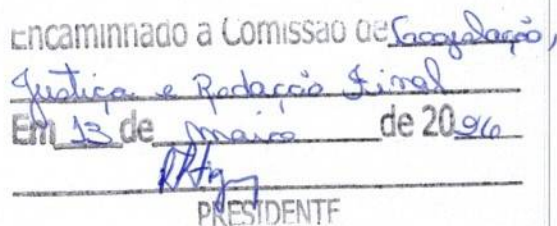 Encaminhado a Comissão de Legislação,
Justiça e Redação Final
Em 13 de de 2026
PRESIDENTE